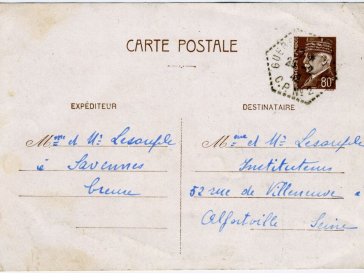 CARTE POSTALE
80c
GUE
C.P. Nº 2
EXPÉDITEUR
Mme et Mr Lesouple
à Savennes
Creuse
DESTINATAIRE
Mme et Mr Lesouple
Instituteurs
52 rue de Villeneuve
Alfortville Seine